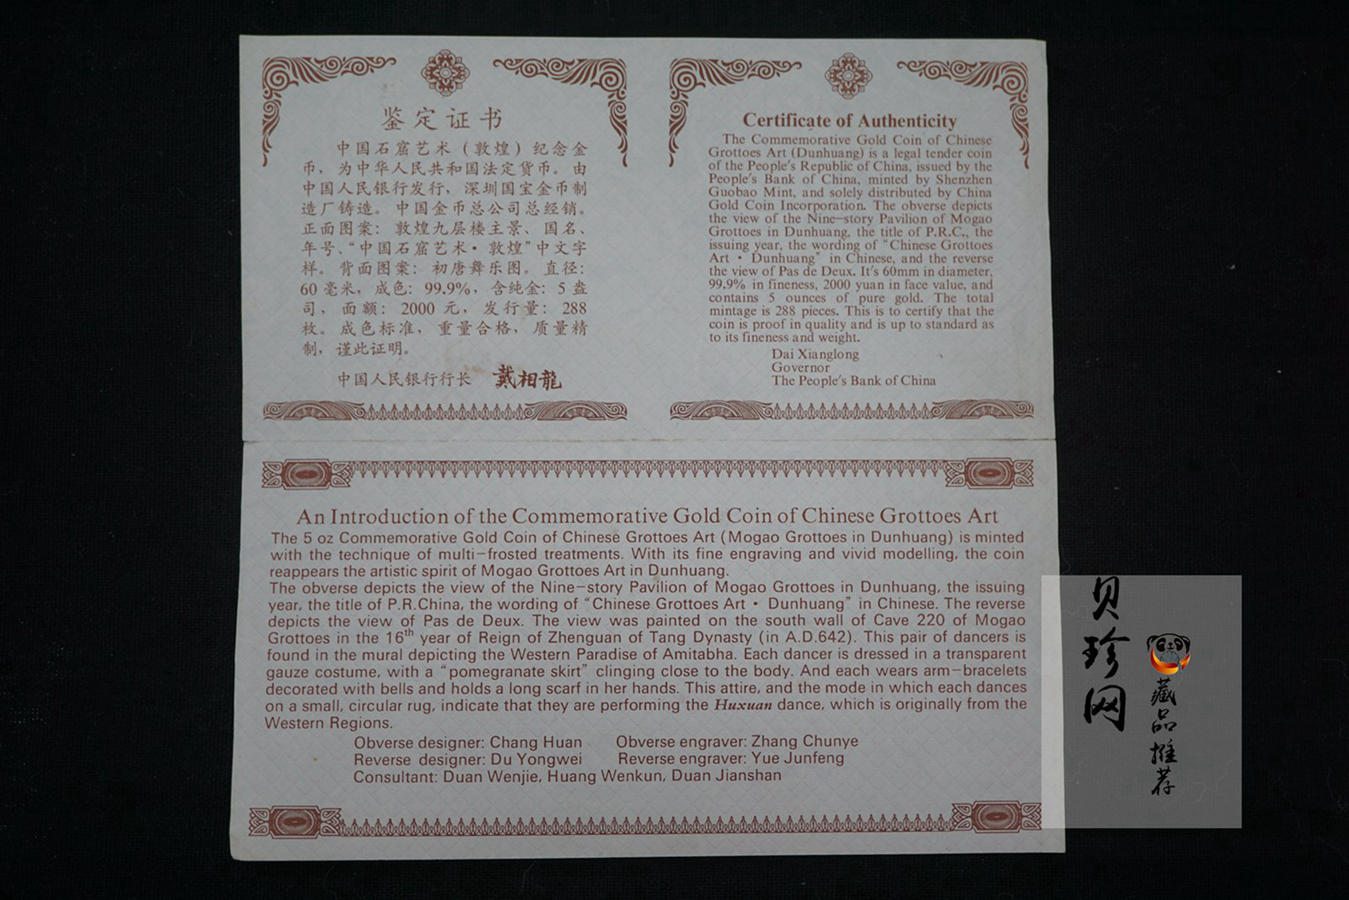 鉴定证书
中国石窟艺术（敦煌）纪念金
币，为中华人民共和国法定货币。由
中国人民银行发行，深圳国宝金币制
造厂铸造。中国金币总公司总经销。
正面图案：敦煌九层楼主景、国名、
年号、“中国石窟艺术·敦煌”中文字
样。背面图案：初唐舞乐图。直径：
60毫米，成色：99.9%，含纯金：5盎
司，面额：2000元，发行量：288
枚。成色标准，重量合格，质量精
制，谨此证明。
中国人民银行行长 戴相龍
Certificate of Authenticity
The Commemorative Gold Coin of Chinese
Grottoes Art (Dunhuang) is a legal tender coin
of the People's Republic of China, issued by the
People's Bank of China, minted by Shenzhen
Guobao Mint, and solely distributed by China
Gold Coin Incorporation. The obverse depicts
the view of the Nine-story Pavilion of Mogao
Grottoes in Dunhuang, the title of P.R.C., the
issuing year, the wording of "Chinese Grottoes
Art · Dunhuang" in Chinese, and the reverse
the view of Pas de Deux. It's 60mm in diameter,
99.9% in fineness, 2000 yuan in face value, and
contains 5 ounces of pure gold. The total
mintage is 288 pieces. This is to certify that the
coin is proof in quality and is up to standard as
to its fineness and weight.
Dai Xianglong
Governor
The People's Bank of China
An Introduction of the Commemorative Gold Coin of Chinese Grottoes Art
The 5 oz Commemorative Gold Coin of Chinese Grottoes Art (Mogao Grottoes in Dunhuang) is minted
with the technique of multi-frosted treatments. With its fine engraving and vivid modelling, the coin
reappears the artistic spirit of Mogao Grottoes Art in Dunhuang.
The obverse depicts the view of the Nine-story Pavilion of Mogao Grottoes in Dunhuang, the issuing
year, the title of P.R.China, the wording of "Chinese Grottoes Art · Dunhuang" in Chinese. The reverse
depicts the view of Pas de Deux. The view was painted on the south wall of Cave 220 of Mogao
Grottoes in the 16th year of Reign of Zhenguan of Tang Dynasty (in A.D.642). This pair of dancers is
found in the mural depicting the Western Paradise of Amitabha. Each dancer is dressed in a transparent
gauze costume, with a "pomegranate skirt" clinging close to the body. And each wears arm-bracelets
decorated with bells and holds a long scarf in her hands. This attire, and the mode in which each dances
on a small, circular rug, indicate that they are performing the Huxuan dance, which is originally from the
Western Regions.
Obverse designer: Chang Huan Obverse engraver: Zhang Chunye
Reverse designer: Du Yongwei Reverse engraver: Yue Junfeng
Consultant: Duan Wenjie, Huang Wenkun, Duan Jianshan
贝珍网
藏品推荐